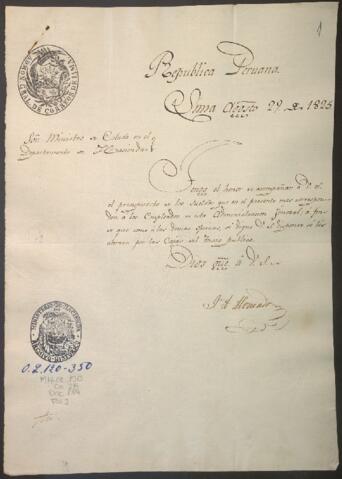 1
Republica Peruana.
Lima Agosto 29 de 1825
Sor. Ministro de Estado en el
Departamento de Hacienda
Tengo el honor de acompañar á V. S.
el presupuesto de los Sueldos que en el presente mes correspon-
den á los Empleados de esta Administracion General, á fin
que como á las demas oficinas, se digne V. S. disponer se les
abonen por las Cajas del Tesoro publico.
Dios gue. á V. S.
MINISTERIO DE HACIENDA
ARCHIVO HISTORICO
O.L. 120-350